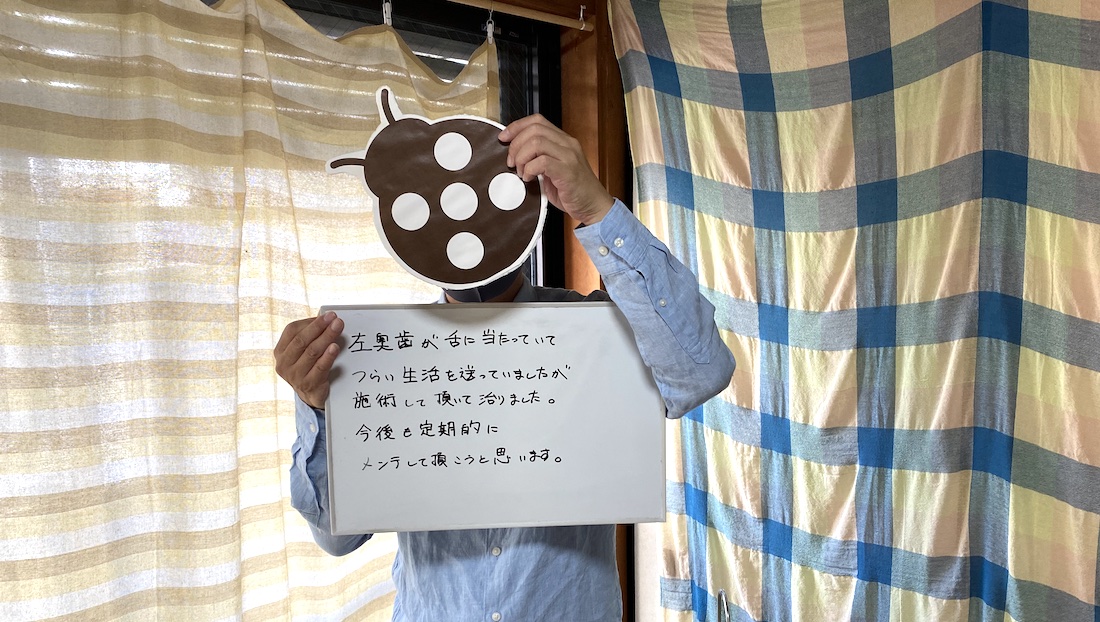 左奥歯が舌に当たっていて
つらい生活を送っていましたが
施術して頂いて治りました。
今後も定期的に
メンテして頂こうと思います。